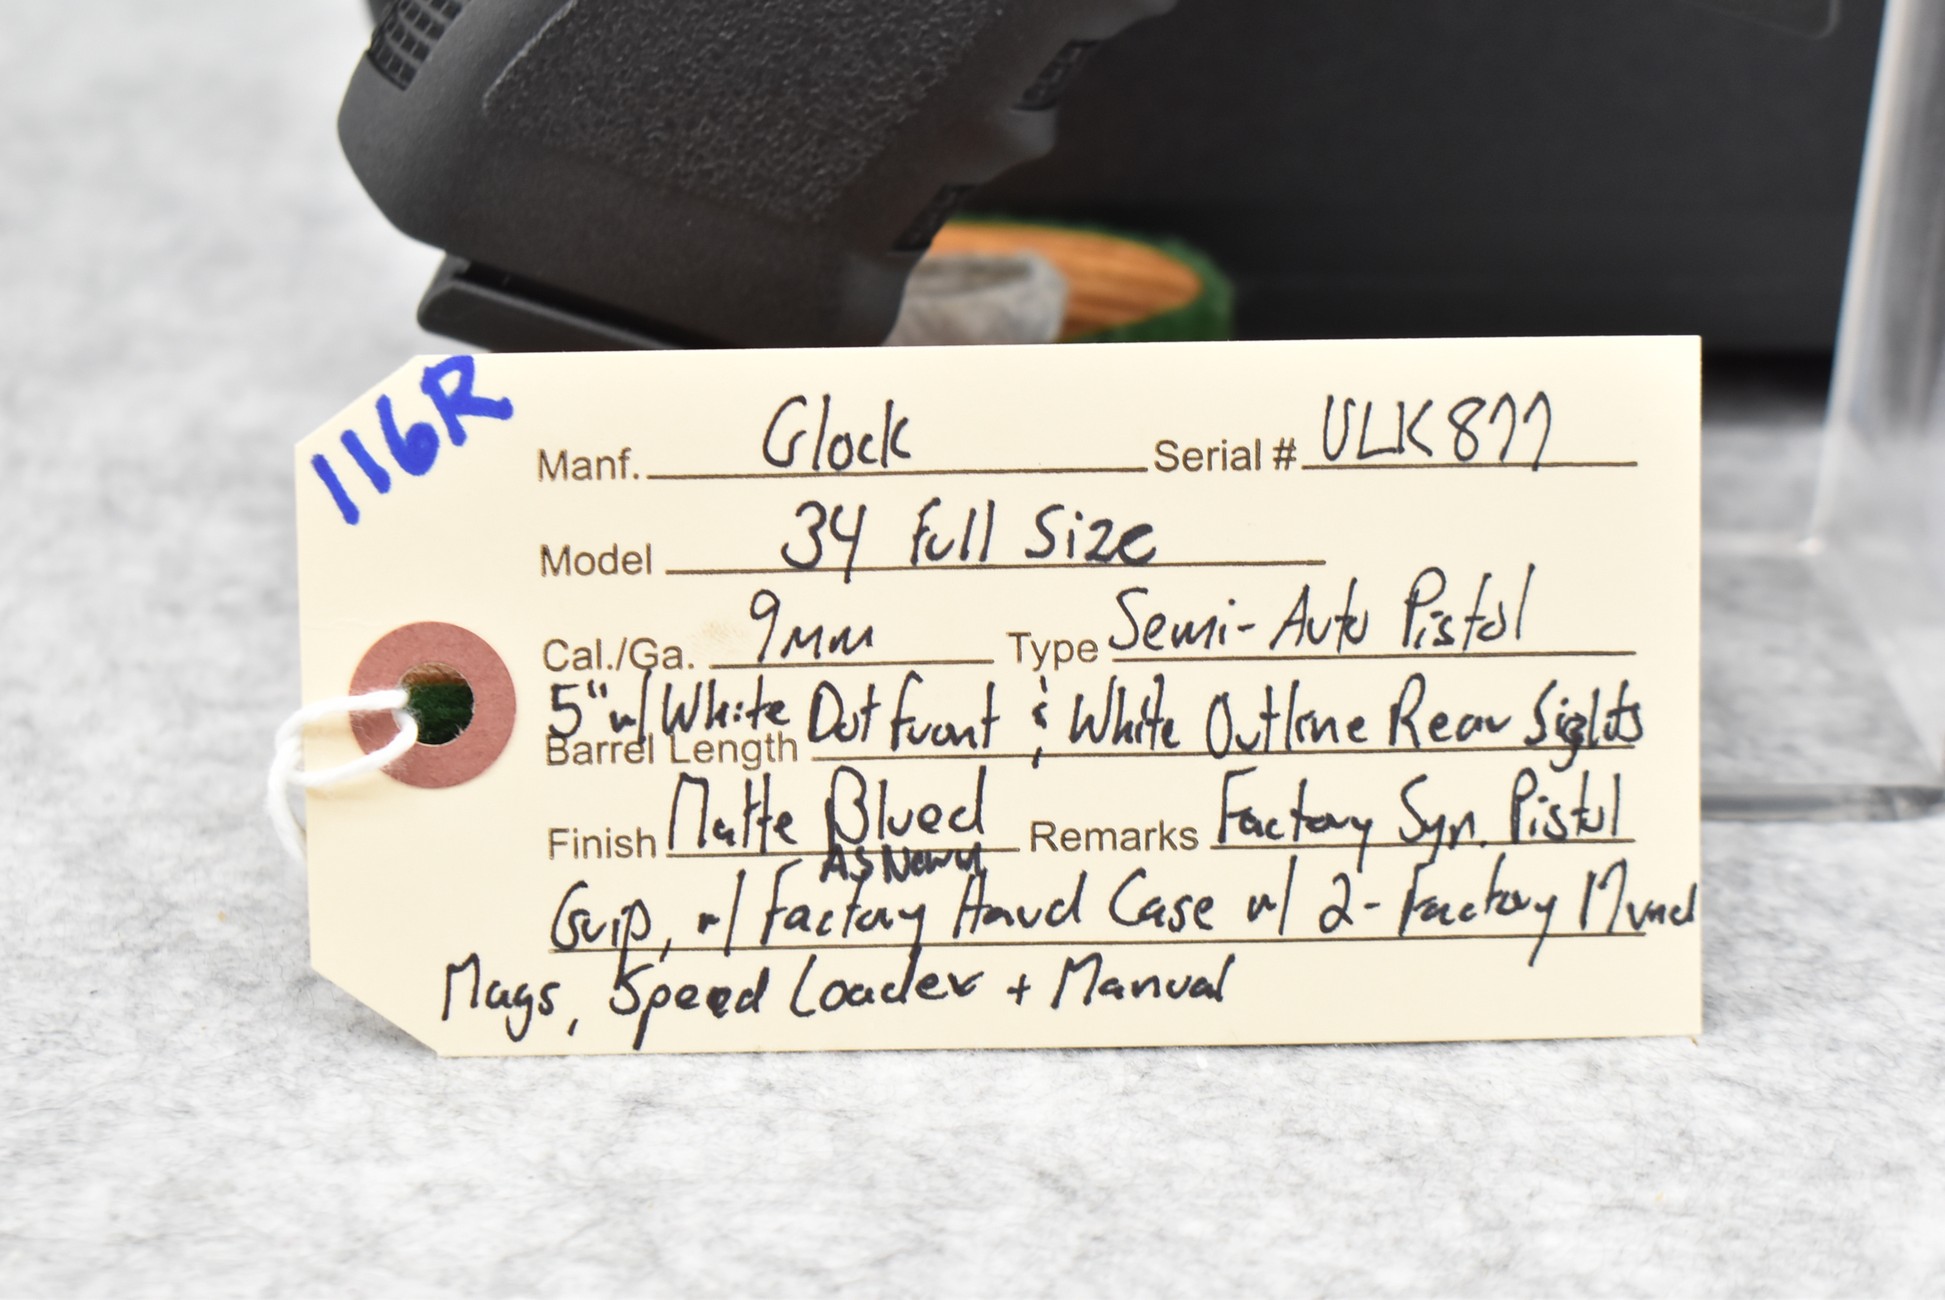 116R
Manf. Glock Serial # ULK877
Model 34 Full Size
Cal./Ga. 9mm Type Semi-Auto Pistol
5" w/ White Dot Front & White Outline Rear Sights
Barrel Length
Finish Matte Blued Remarks Factory Syn. Pistol
AS New
Grip, w/ Factory Hard Case w/ 2- Factory 17rnd
Mags, Speed Loader + Manual